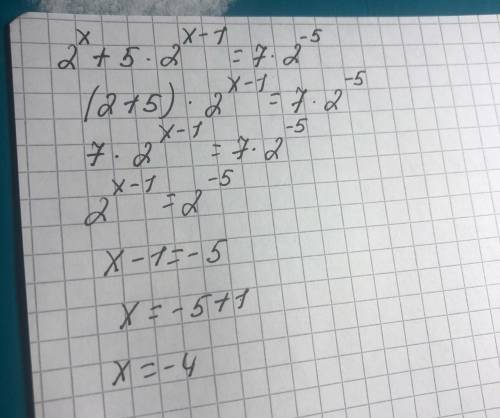 2^x + 5 · 2^{x-1} = 7 · 2^{-5}
(2+5) · 2^{x-1} = 7 · 2^{-5}
7 · 2^{x-1} = 7 · 2^{-5}
2^{x-1} = 2^{-5}
x - 1 = -5
x = -5 + 1
x = -4